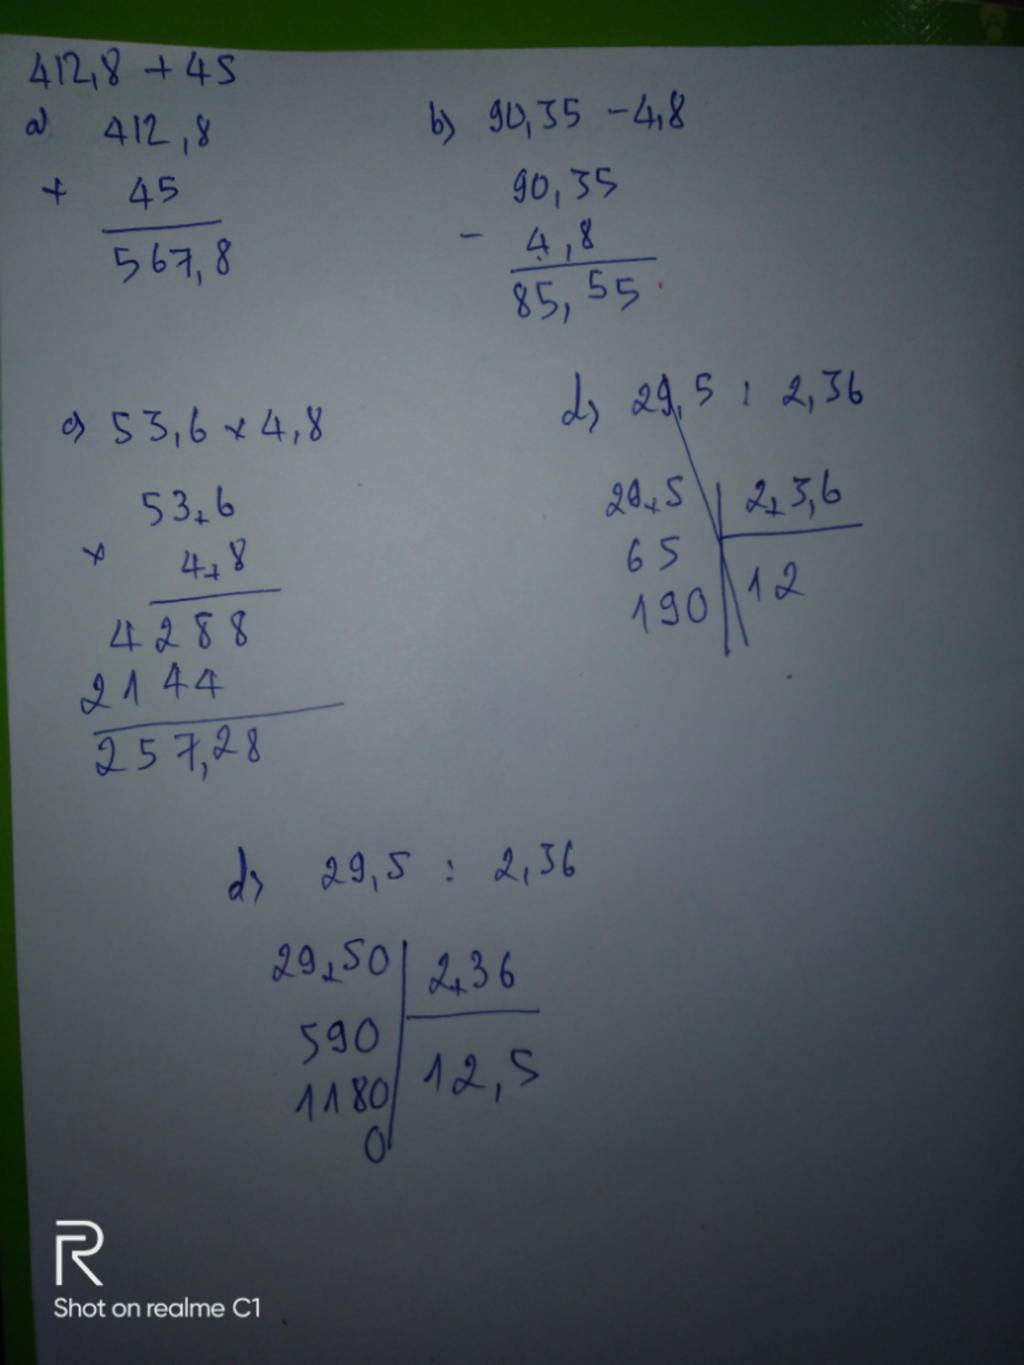 412,8 + 45
a) 412,8
+ 45
567,8
b) 90,35 - 4,8
90,35
- 4,8
85,55
c) 53,6 x 4,8
53,6
x 4,8
4288
2144
257,28
d) 29,5 : 2,36
29,5 2,3,6
65 12
190
d) 29,5 : 2,36
29,50 2,36
590 12,5
1180
0
R
Shot on realme C1